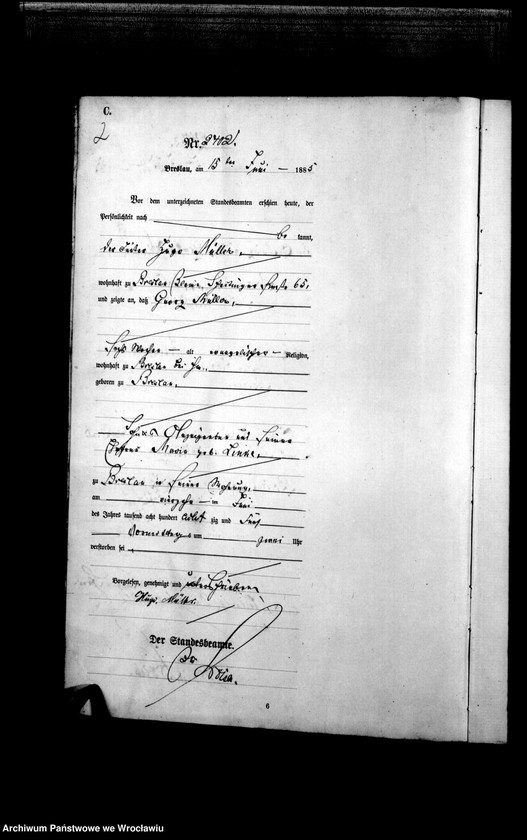 C.
2
Nr. 2702.
Breslau, am 15 ten Juni 1885
Vor dem unterzeichneten Standesbeamten erschien heute, der
Persönlichkeit nach
be kannt,
der Hugo Müller,
wohnhaft zu Breslau, Straße 65,
und zeigte an, daß Georg Müller,
sechs Wochen alt evangelischer Religion,
wohnhaft zu Breslau bei ihm,
geboren zu Breslau,
Sohn des Anzeigenden und seiner
Ehefrau Marie geb. Linke,
zu Breslau in seiner Wohnung,
am vierzehn ten Juni
des Jahres tausend acht hundert acht zig und fünf
Vormittags um zwei Uhr
verstorben sei
Vorgelesen, genehmigt und unterschrieben
Hugo Müller.
Der Standesbeamte.
6
Archiwum Państwowe we Wrocławiu